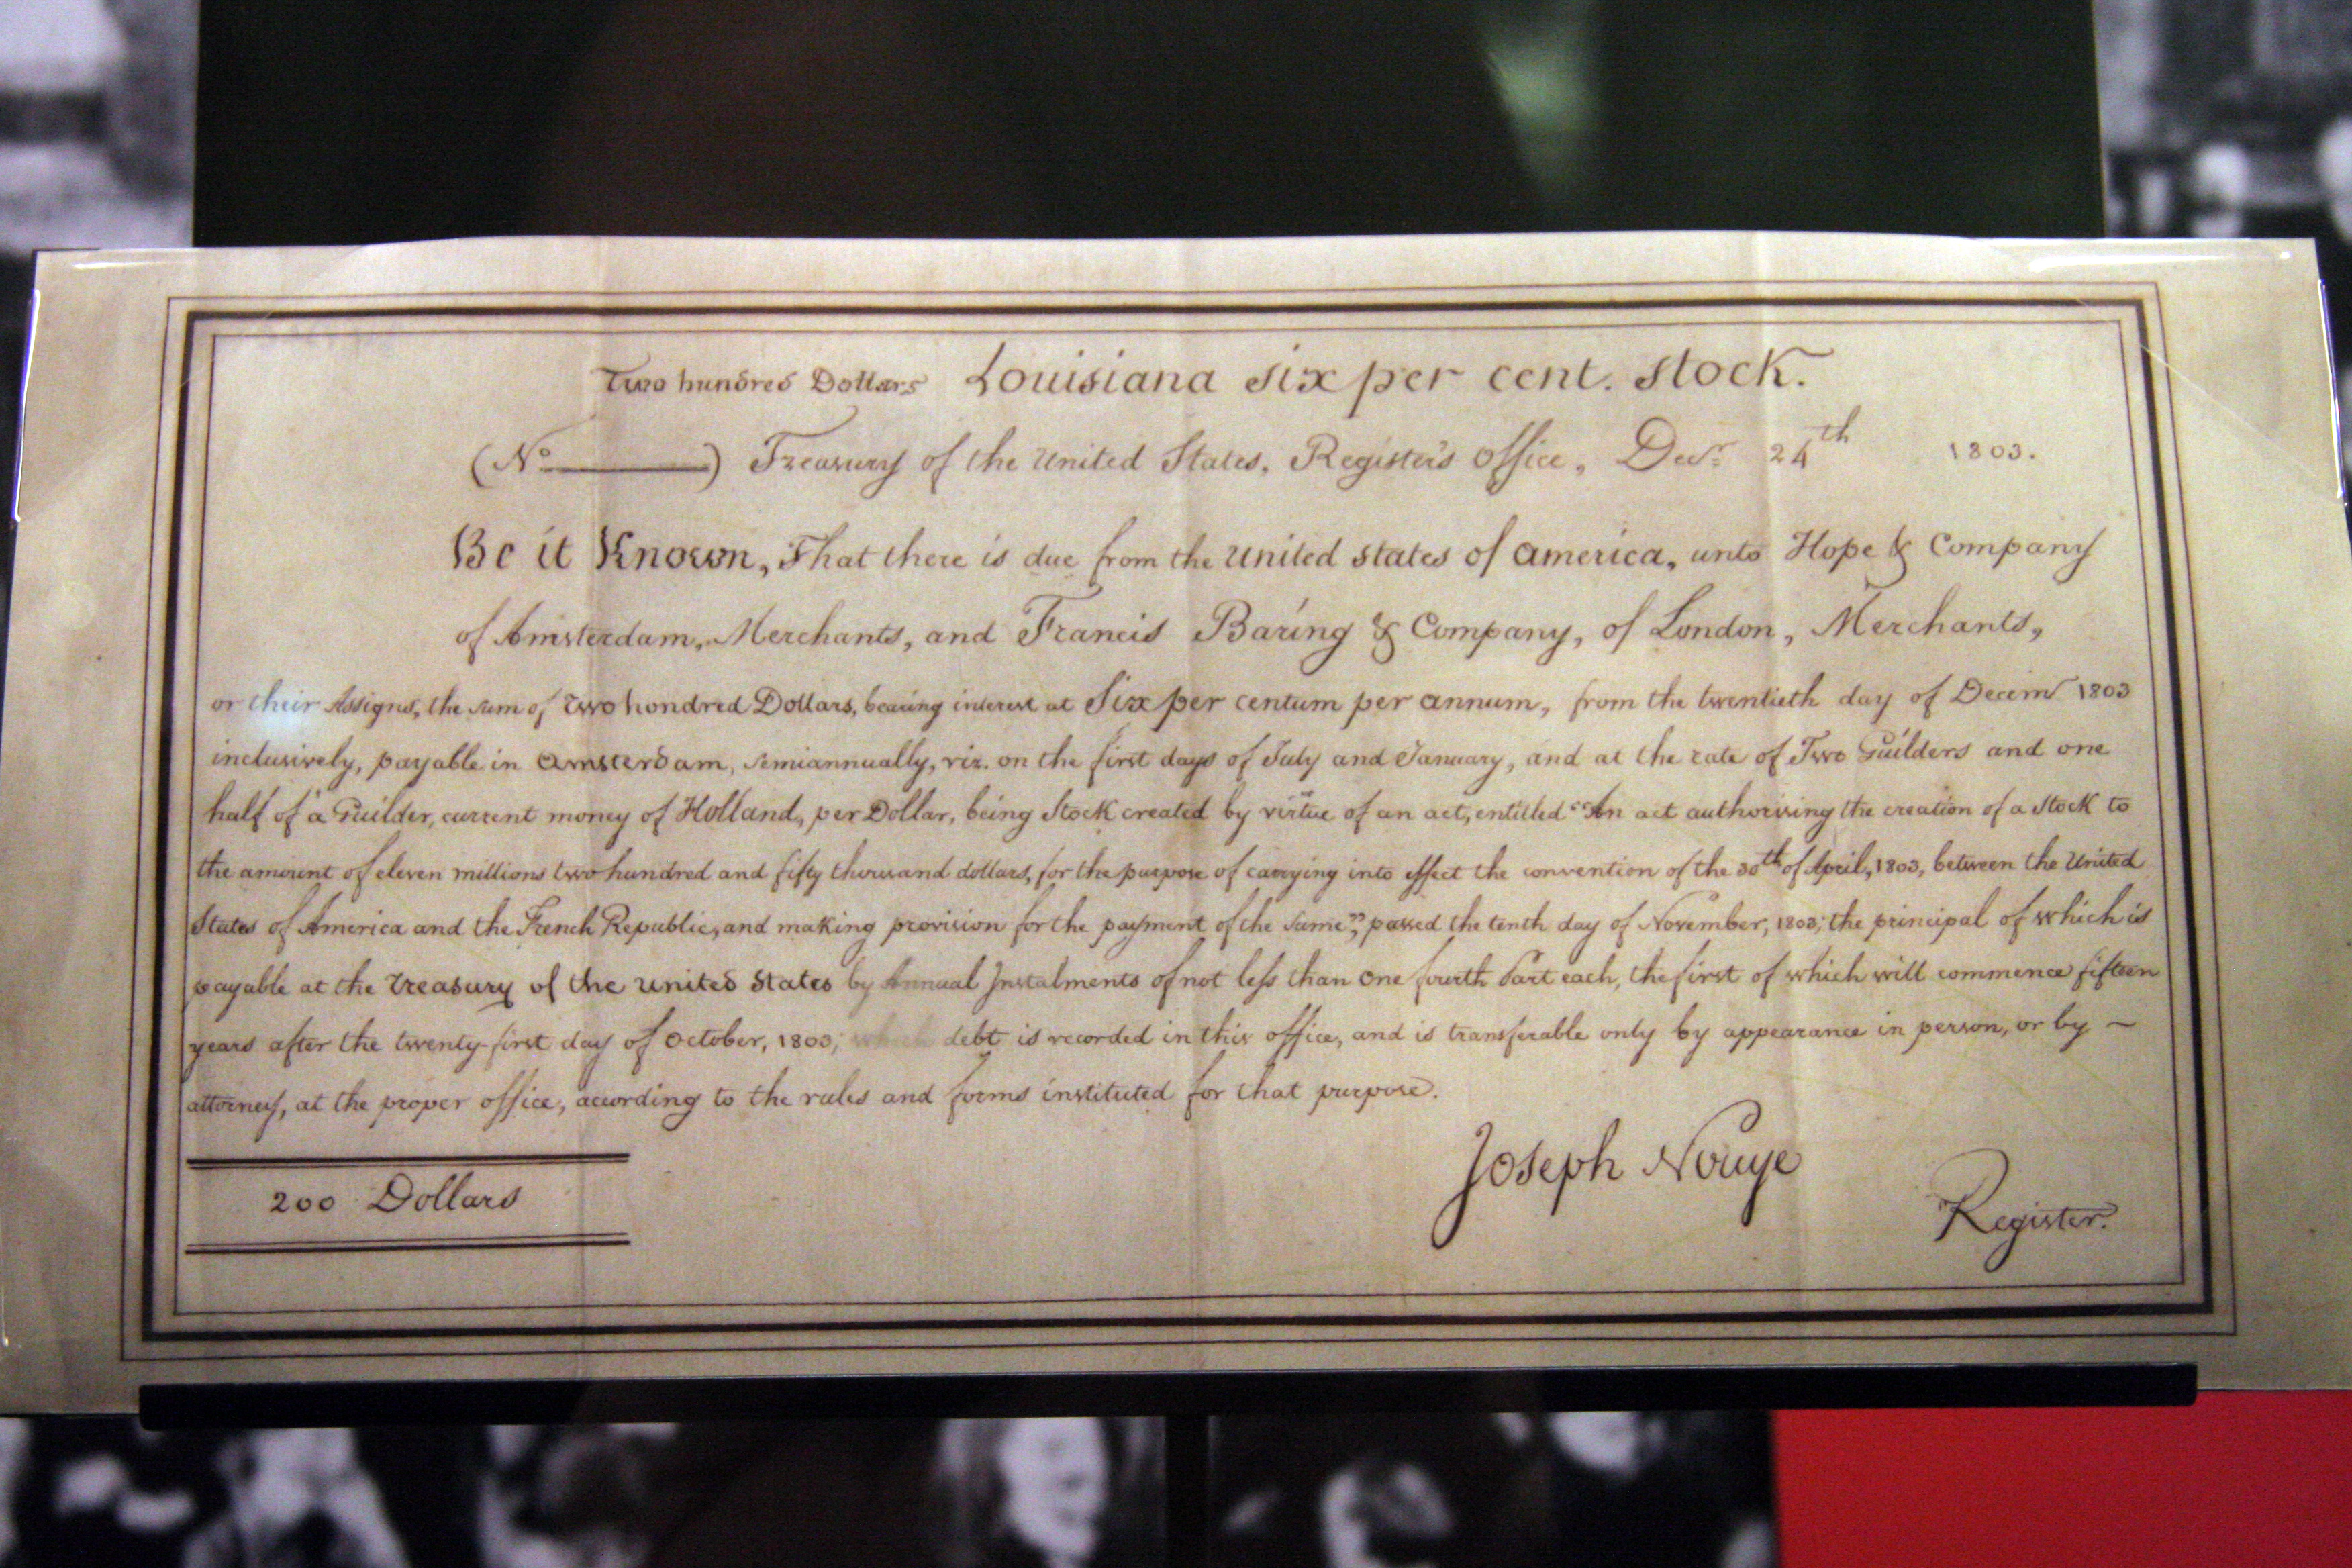 Two hundred Dollars Louisiana six per cent. stock.
(No ) Treasury of the United States, Register's Office, Decr. 24th 1803.
Be it Known, That there is due from the United States of America, unto Hope & Company
of Amsterdam, Merchants, and Francis Baring & Company, of London, Merchants,
or their Assigns, the sum of Two hondred Dollars, bearing interest at Six per centum per annum, from the twentieth day of Decemr 1803
inclusively, payable in Amsterdam, semiannually, viz. on the first days of July and January, and at the rate of Two Guilders and one
half of a Guilder, current money of Holland, per Dollar, being Stock created by virtue of an act, entitled “An act authorising the creation of a Stock to
the amount of eleven millions two hundred and fifty thousand dollars, for the purpose of carrying into effect the convention of the 30th of April, 1803, between the United
States of America and the French Republic, and making provision for the payment of the same”, passed the tenth day of November, 1803; the principal of which is
payable at the Treasury of the United States by Annual Instalments of not less than One fourth Part each, the first of which will commence fifteen
years after the twenty-first day of October, 1803; which debt is recorded in this office, and is transferable only by appearance in person, or by ~
attorney, at the proper office, according to the rules and forms instituted for that purpose.
Joseph Nouye
200 Dollars
Register.